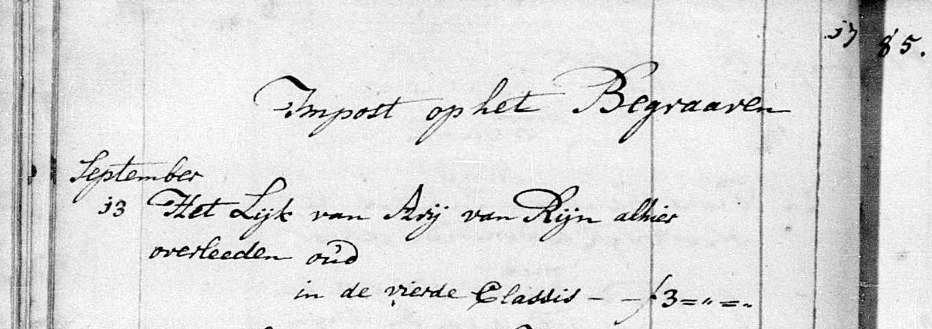 1785.
Impost op het Begraaven
September
13 Het Lijk van Arij van Rijn alhier
overleeden oud
in de vierde Classis - - ƒ 3=„=„